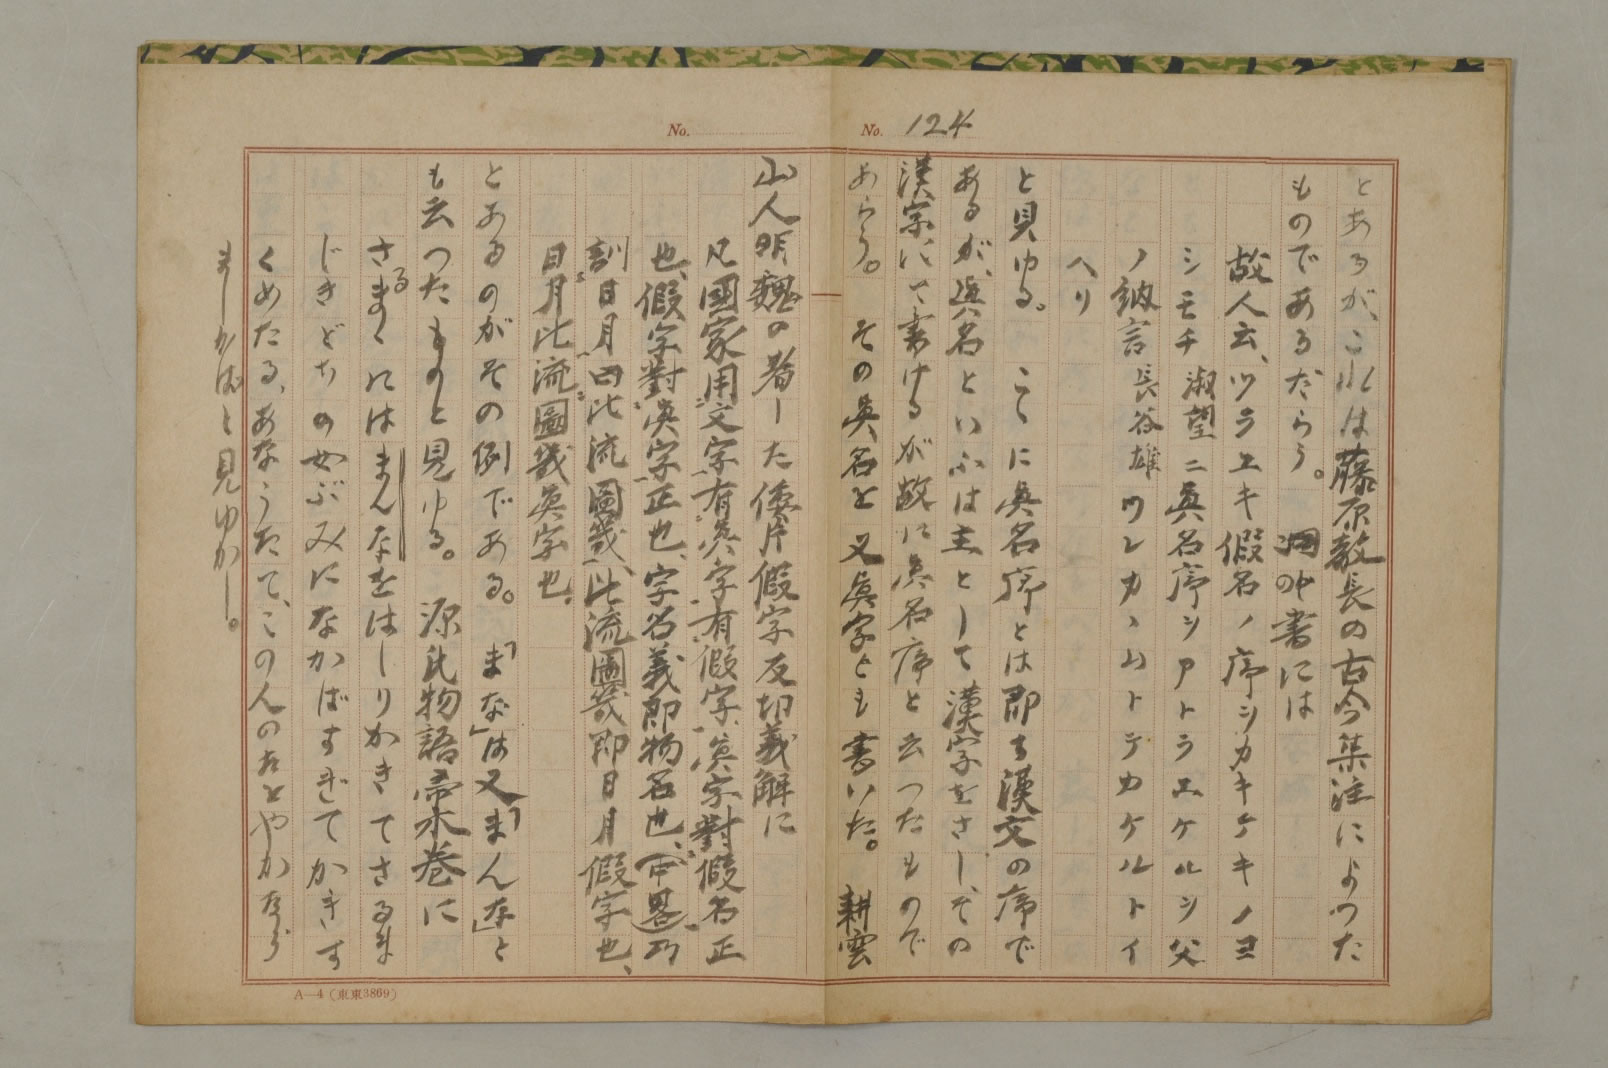 No. 124
とあるが、これは藤原教長の古今集注によつた
ものであるだらう。 同書には
故人云、ツラユキ假名ノ序ヲカキケキノヨ
シモチ淑望ニ眞名序ヲアトラエケルヲ父
ノ納言長谷雄ツレカヽムトテカケルトイ
ヘリ
と見ゆる。 こゝに眞名序とは即ち漢文の序で
あるが、眞名といふは主として漢字をさし、その
漢字にて書けるが故に眞名序と云つたもので
あらう。 その眞名を又眞字とも書いた。 耕雲
No.
山人明魏の著した倭片假字反切義解に
凡國家用文字、有眞字、有假字、眞字對假名正
也、假字對眞字正也、字名義即物名也、(中畧)乃
訓日月曰比流圖幾、比流圖幾即日月假字也、
日月比流圖幾眞字也、
とあるのがその例である。 「まな」は又「まんな」と
も云つたものと見ゆる。 源氏物語帚木巻に
さるまゝにはまんなをはしりかきてさるま
じきどちの女ぶみになかばすぎてかきす
くめたる、あなうたて、この人のたをやかなら
ましかばと見ゆかし。
A—4 (東東3869)